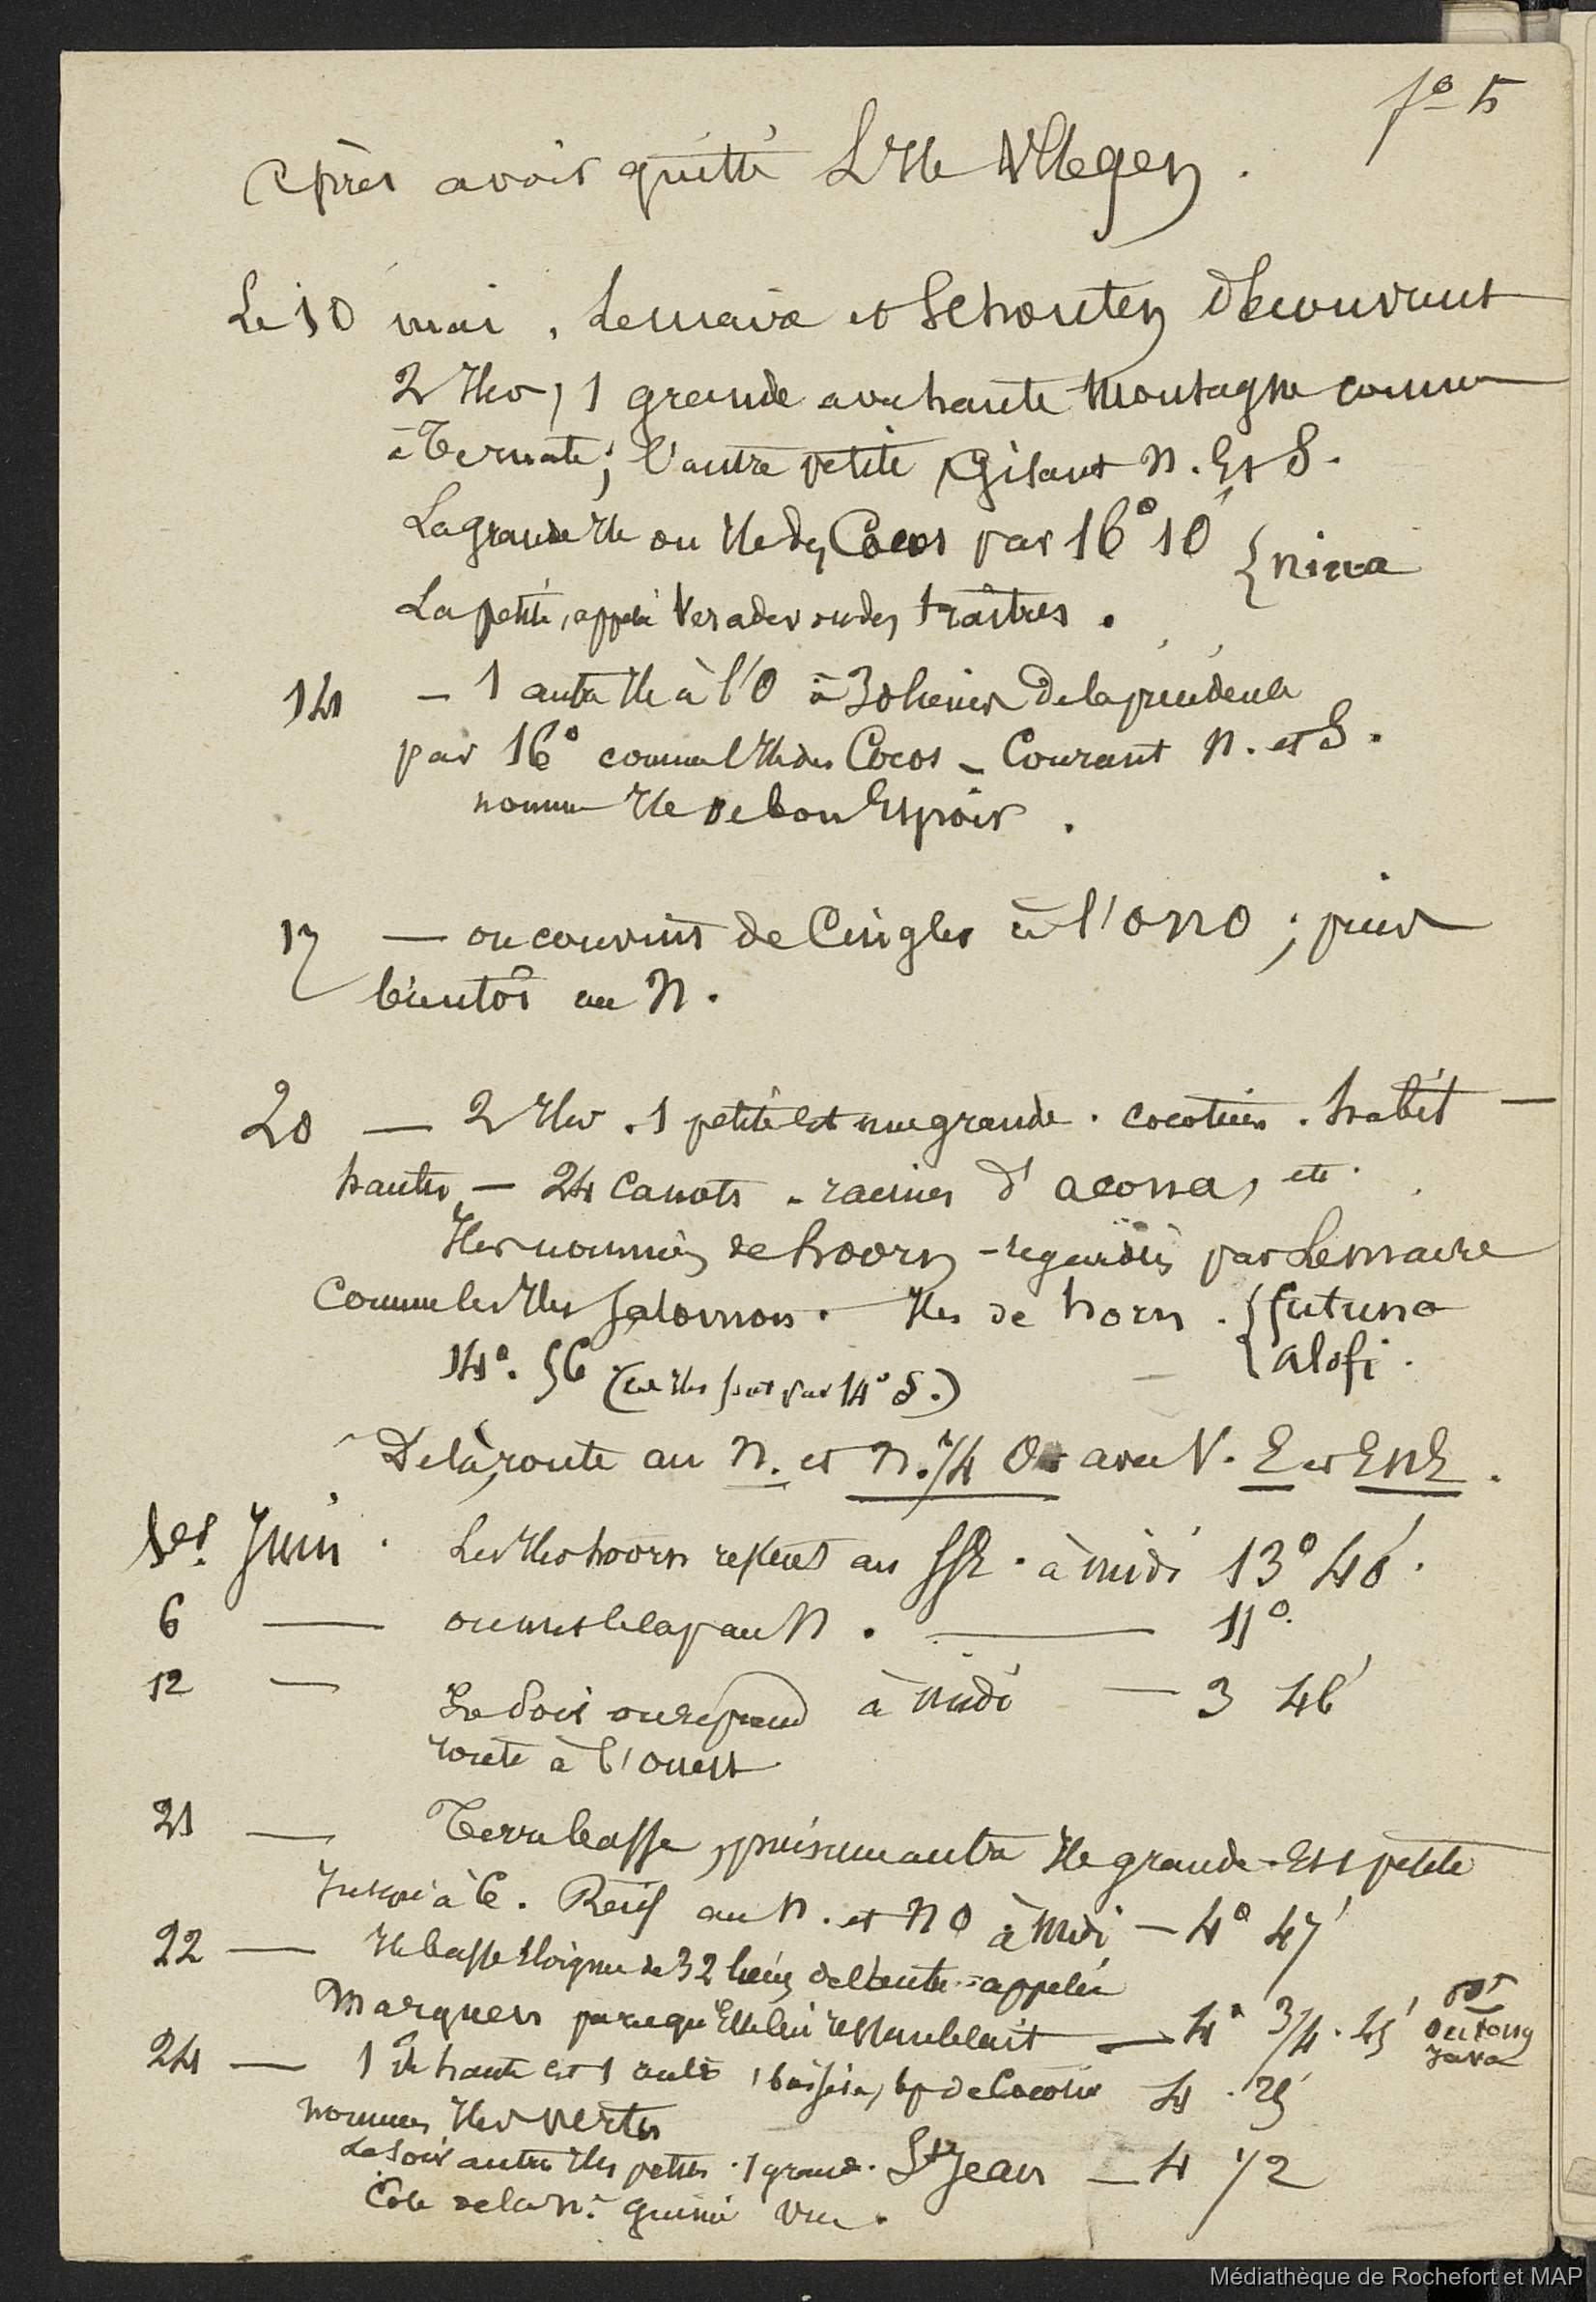 fo 5
Après avoir quitté L'Ile Vlegen.
Le 10 mai, Lemaire et Schouten découvrent
2 Iles, 1 grande avec haute Montagne comme
à Ternate; l'autre petite, Gisant N. Et S.
La grande Ile ou Ile des Cocos par 16° 10' { niwa
La petite, appelée Verader ou des traîtres.
14 — 1 autre Ile à l'O à 30 lieues de la précédente
par 16° comme l'Ile des Cocos - Courant N. et S.
nommée Ile de bon Espoir.
17 — on convint de Cingler à l'ONO; puis
bientôt au N.
20 — 2 Iles. 1 petite et une grande. cocotiers. habit —
hautes — 24 canots - racines d'acona, etc.
Iles nommées de hoorn - regardées par Lemaire
Comme les Iles Salomon. Iles de horn. { futuna
14°. 56 (ces Iles sont par 14° S.) alofi.
De là, route au N. et N. 1/4 O avec V. E et ENE.
1er. Juin. Les Iles hoorn restent au SSE. à midi 13° 40'.
6 — on met le cap au N. — 11°.
12 — à midi — 3 46'
Le Soir on reprend
route à l'ouest
21 — Terre basse, puis une autre Ile grande Et 1 petite
Jusqu'à 6. Récif au N. et NO à Midi — 4° 47'
22 — Ile basse éloignée de 32 lieues de l'autre - appelée
Marquen parcequ'Elle lui ressemblait — 4° 3/4. 45'
Java
24 — 1 Ile haute et 1 autre, bp de Cocotiers 4. 25'
nommées Iles vertes
Le soir autres Iles petites. 1 grande. St Jean — 4 1/2
Côte de la Nlle guinée vue.
Médiathèque de Rochefort et MAP